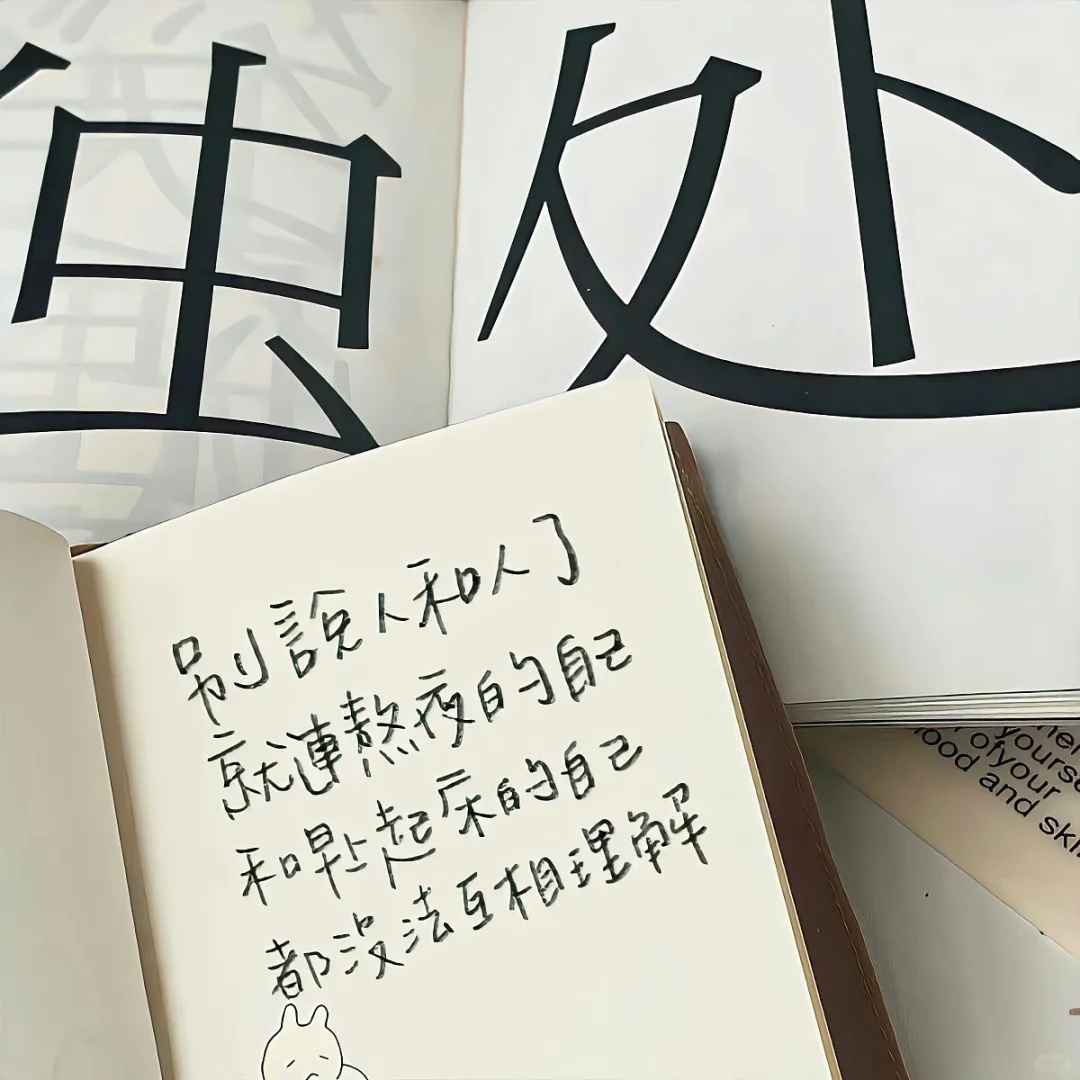 处
別說人和人了
就連熬夜的自己
和早上起床的自己
都沒法互相理解
yourse
of your
ood and skin